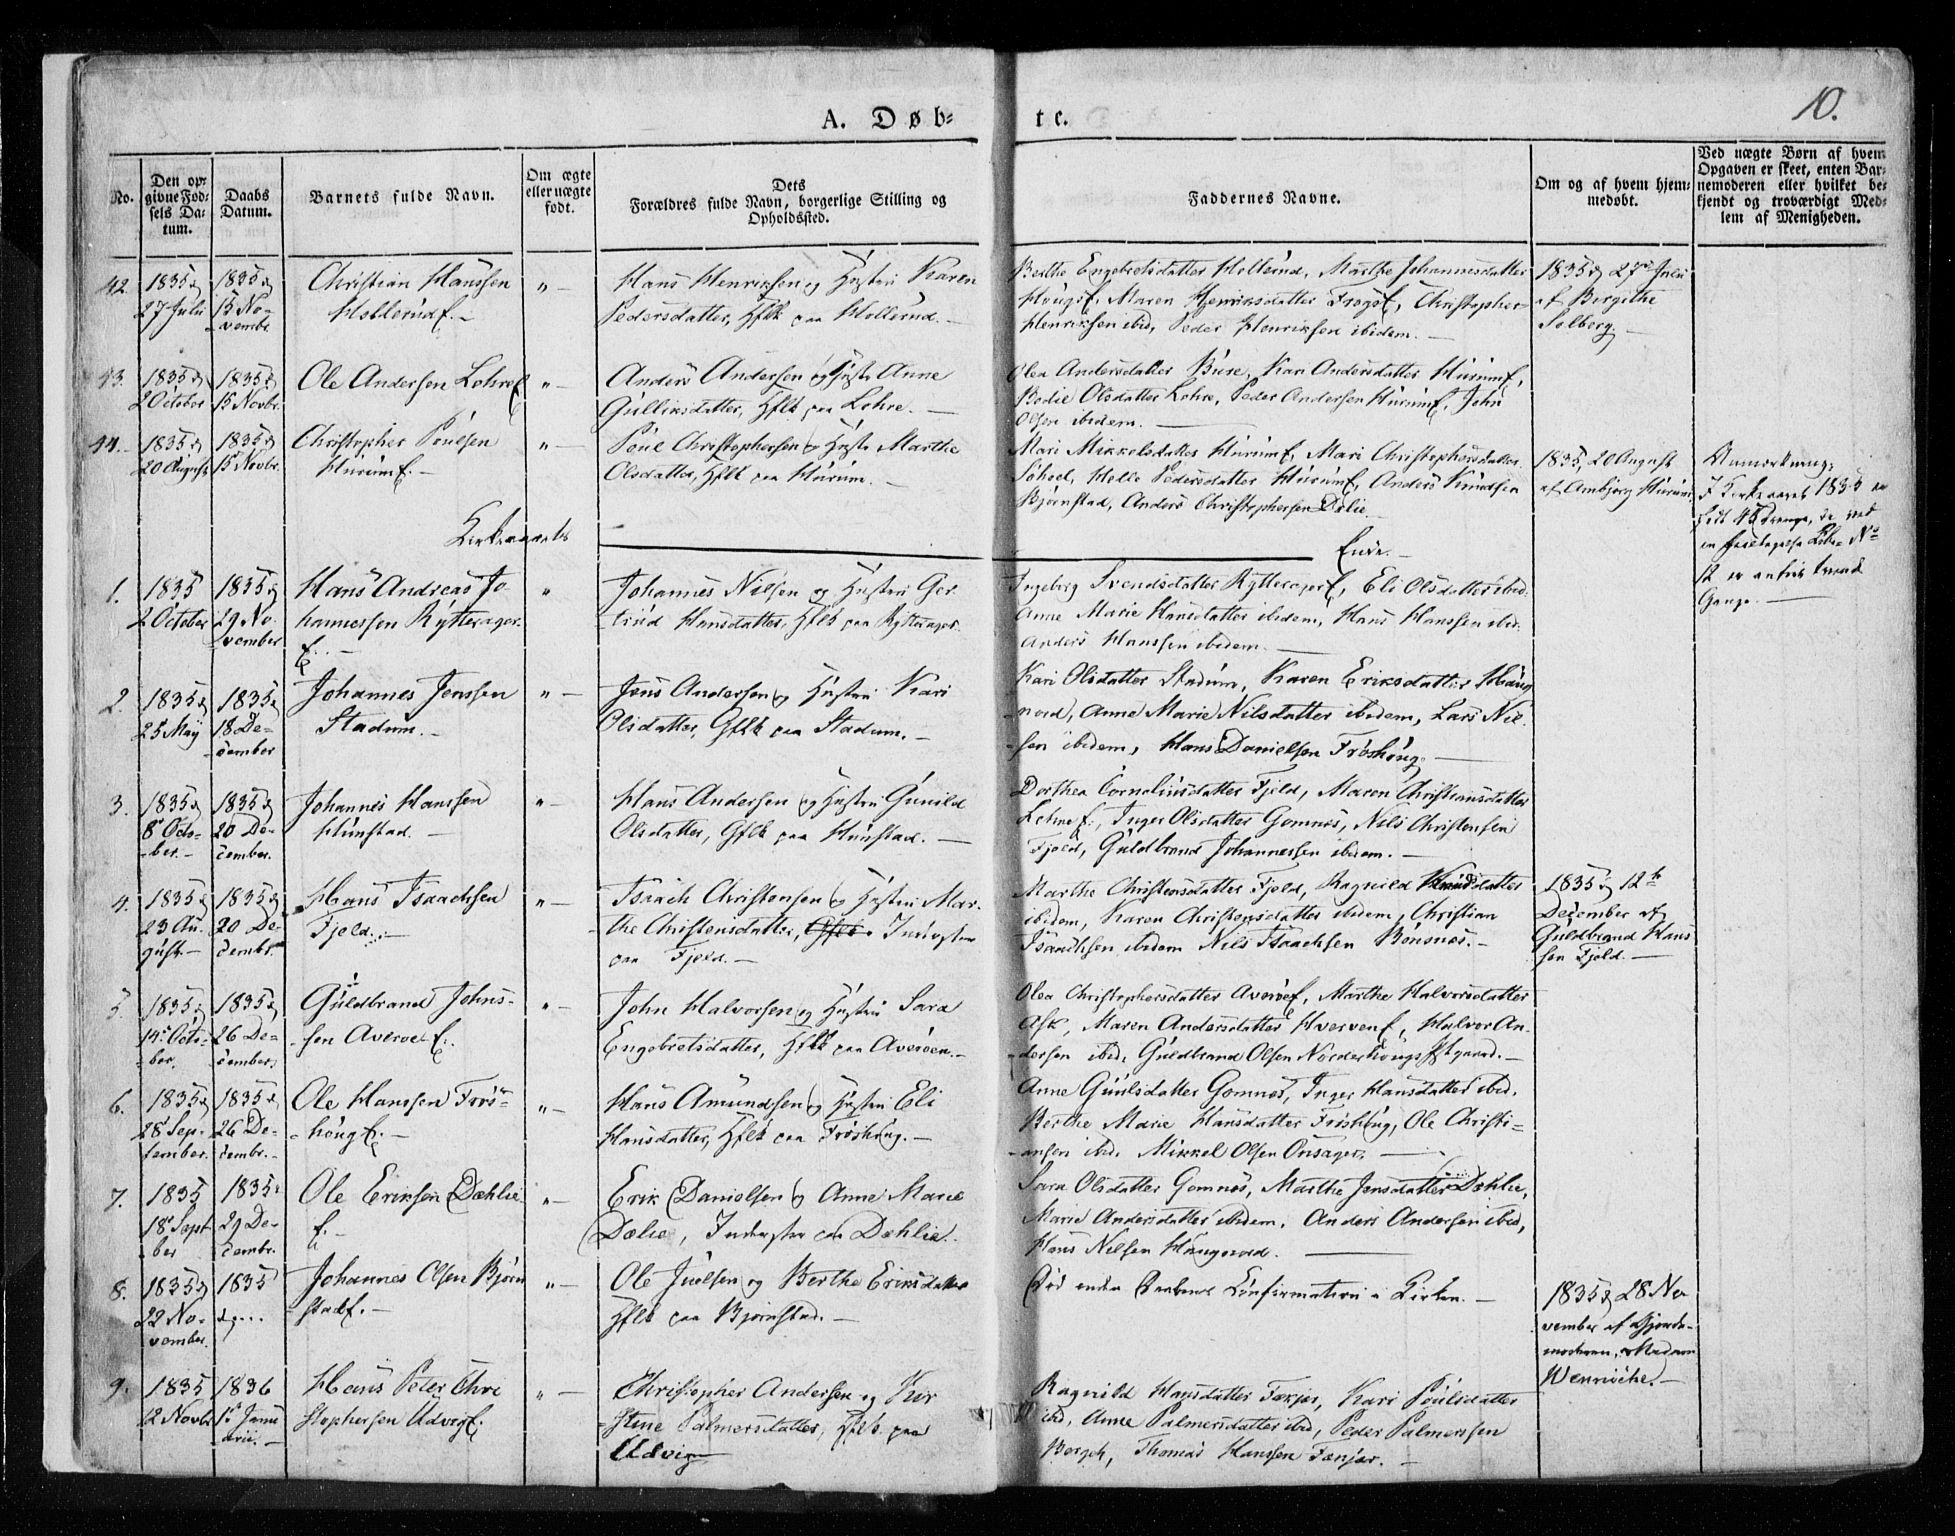 10.
A. Døb-
te.
No.
Den op-
givne Fød-
sels Da-
tum.
Daabs
Datum.
Barnets fulde Navn.
Om ægte
eller uægte
født.
Dets
Forældres fulde Navn, borgerlige Stilling og
Opholdssted.
Faddernes Navne.
Om og af hvem hjem-
medøbt.
Ved uægte Børn af hvem
Opgaven er skeet, enten Bar-
nemoderen eller hvilket be-
kjendt og troværdigt Med-
lem af Menigheden.
42.
1835
27 Julii
1835
15 No-
vembr
Christian Hanssen
Hollerud E. -
" -
Hans Henriksen og Hustru Karen
Pedersdatter, Hflk paa Hollerud. -
Berthe Engebretsdatter Hollerud, Marthe Johannesdatter
Maren Henriksdatter Christopher
Henriksen ibid, Peder Henriksen ibidem. -
1835 27de Julii
af Bergithe
Solberg. -
43.
1835
2 October
1835
15 Novbr.
Ole Andersen Lohre E
" -
Anders Andersen og Hustru Anne
Gulliksdatter, Hflk paa Lohre. -
Olea Andersdatter Bure, Kari Andersdatter Hurum E,
Bodie Olsdatter Lohre, Peder Andersen Hurum E, John
Olsen ibidem. -
44.
1835
20 August
1835
15 Novbr.
Christopher Poulsen
Hurum E. -
" -
Poul Christophersen og Hustru Marthe
Olsdatter, Hflk paa Hurum. -
Mari Mikkelsdatter Hurum E, Mari Christophersdatter
Helle Pedersdatter Hurum E, Anders Knudsen
Bjørnstad, Anders Christophersen Dælie.
1835, 20 August
af Ambjørg Hurum
Anmærkning:
I Kirkeaaret 1835 er
født 48 Drenge, da ved
en No
12 er anført tvende
Gange. -
Kirkeaarets
Ende. -
1.
1835
2 October
1835
29 No-
vember
Hans Andreas Jo-
hannessen Rytterager
E. -
"
Johannes Nilsen og Hustru Ger-
trud Hansdatter, Hflk paa Rytterager.
Ingeborg Svendsdatter Rytterager E, Eli Olsdatter ibid.
Anne Marie Hansdatter ibidem, Hans Hanssen ibid.
Anders Hanssen ibidem. -
2.
1835
25 May
1835
18 De-
cember
Johannes Jenssen
Stadum. -
" -
Jens Andersen og Hustru Kari
Olsdatter, Gflk paa Stadum. -
Kari Olsdatter Stadum, Karen Eriksdatter Haug-
nord, Anne Marie Nilsdatter ibidem, Lars Nil-
sen ibidem, Hans Danielsen Frøshoug. -
3.
1835
8de Octo-
ber. -
1835
20 De-
cember.
Johannes Hanssen
Hunstad. -
" -
Hans Andersen og Hustru Gunild
Olsdatter, Gflk paa Hunstad. -
Dorthea Corneliusdatter Fjeld, Maren Christiansdatter
Lehne E., Inger Olsdatter Gomnes, Nils Christensen
Fjeld, Guldbrand Johannessen ibidem. -
4.
1835
23 Au-
gust. -
1835
20 De-
cembr.
Hans Isaachsen
Fjeld. -
" -
Isaach Christensen og Hustru Mar-
the Christensdatter, Inderster
paa Fjeld. -
Marthe Christensdatter Fjeld, Ragnild Knudsdatter
ibidem, Karen Christensdatter ibidem, Christian
Isaachsen ibidem Nils Isaachsen Bønsnes. -
1835 12te
December af
Guldbrand Hans-
sen Fjeld. -
5
1835
14de Octo-
ber.
1835
26 De-
cember.
Guldbrand Johns-
sen Averøe E.
" -
John Halvorsen og Hustru Sara
Engebretsdatter, Hflk paa Averøen. -
Olea Christophersdatter Averøe E, Marthe Halvorsdatter
Ask, Maren Andersdatter Hverven E, Halvor An-
dersen ibid. Guldbrand Olsen Norderhougs Pstgaard. -
6.
1835
28 Sep-
tember.
1835
26 De-
cembr. -
Ole Hanssen Frøs-
houg E. -
" -
Hans Amundsen og Hustru Eli
Hansdatter, Hflk paa Frøshoug. -
Anne Guulsdatter Gomnes, Inger Hansdatter ibid.
Berthe Marie Hansdatter Frøshoug, Ole Christi-
ansen ibid. Mikkel Olsen Onsager. -
7.
1835
18 Sept
ber
1835
29 De-
cembr.
Ole Eriksen Dæhlie
E. -
" -
Erik Danielsen og Anne Marie
Dælie, Inderster paa Dæhlie.
Sara Olsdatter Gomnes, Marthe Jensdatter Dæhlie,
Marie Andersdatter ibidem. Anders Andersen ibid,
Hans Nilsen Haugnord. -
8.
1835
22 No-
vember.
1835
d. . . .
Johannes Olsen Bjørn-
stad E. -
" -
Ole Juelsen og Berthe Eriksdatter
Hflk paa Bjørnstad. -
Død inden Daabens Confirmation i Kirken. -
1835 28 No-
vember af Gjorde-
moderen, Madam
Wenniche. -
9.
1835
12 Novbr.
1836
1te Janu-
arii. -
Hans Peter Chri-
stophersen Udvig E.
" -
Christopher Andersen og Kir-
stine Palmersdatter, Hflk paa
Udvig
Ragnild Hansdatter Fækjær, Kari Poulsdatter
ibid, Anne Palmersdatter ibid, Peder Palmerssen
Thomas Hanssen Fækjær. -